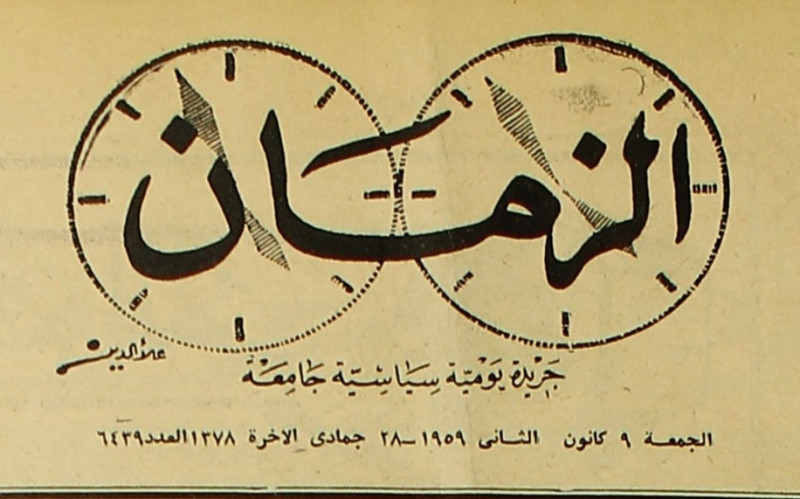 الزمان
علاء الدين
جَريْدة يَوْميّة سِيَاسِيّة جَامِعَة
الجمعة ٩ كانون الثانى ١٩٥٩ – ٢٨ جمادى الاخرة ١٣٧٨ العدد ٦٤٣٩